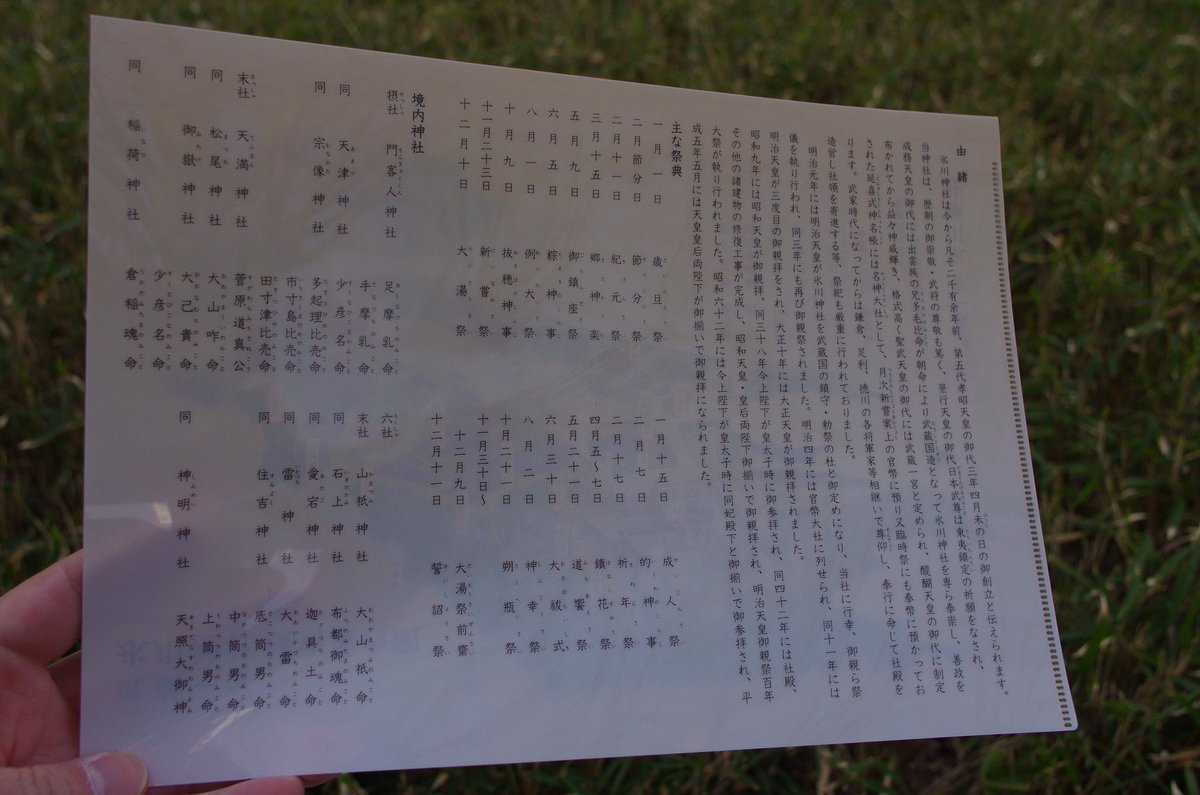 由緒
氷川神社は今から凡そ二千有余年前、第五代孝昭天皇の御代三年四月未の日の御創立と伝えられます。
当神社は、歴朝の御崇敬・武将の尊敬も篤く、景行天皇の御代日本武尊は東夷鎮定の祈願をなされ、
成務天皇の御代には出雲族の兄多毛比命が朝命により武蔵国造となって氷川神社を専ら奉崇し、善政を
布かれてから益々神威輝き、格式高く聖武天皇の御代には武蔵一宮と定められ、醍醐天皇の御代に制定
された延喜式神名帳には名神大社として、月次新嘗案上の官幣に預り又臨時祭にも奉幣に預かってお
ります。武家時代になってからは鎌倉、足利、徳川の各将軍家等相継いで尊仰し、奉行に命じて社殿を
造営し社領を寄進する等、祭祀も厳重に行われておりました。
明治元年には明治天皇が氷川神社を武蔵国の鎮守・勅祭の社と御定めになり、当社に行幸、御親ら祭
儀を執り行われ、同三年にも再び御親祭されました。明治四年には官幣大社に列せられ、同十一年には
明治天皇が三度目の御親拝をされ、大正十年には大正天皇が御親拝されました。
昭和九年には昭和天皇が御親拝、同三十八年今上陛下が皇太子時に御参拝され、同四十二年には社殿、
その他の諸建物の修復工事が完成し、昭和天皇・皇后両陛下御揃いで御親拝され、明治天皇御親祭百年
大祭が執り行われました。昭和六十二年には今上陛下が皇太子時に同妃殿下と御揃いで御参拝され、平
成五年五月には天皇皇后両陛下が御揃いで御親拝になられました。
主な祭典
一月一日 歳旦祭
二月節分日 節分祭
二月十一日 紀元祭
三月十五日 郷神楽
五月九日 御鎮座祭
六月五日 粽神事
八月一日 例大祭
十月九日 抜穂神事
十一月二十三日 新嘗祭
十二月十日 大湯祭
一月十五日 成人祭
二月七日 的神事
二月十七日 祈年祭
四月五〜七日 鎮花祭
五月二十一日 道饗祭
六月三十日 大祓式
八月二日 神幸祭
十月二十一日 朔瓶祭
十一月三十日〜
十二月九日 大湯祭前齋
十二月十一日 誓詔祭
境内神社
摂社 門客人神社 足摩乳命
手摩乳命
同 天津神社 少彦名命
同 宗像神社 多起理比売命
市寸島比売命
田寸津比売命
末社 天満神社 菅原道真公
同 松尾神社 大山咋命
同 御嶽神社 大己貴命
少彦名命
同 稲荷神社 倉稲魂命
六社
末社 山祇神社 大山祇命
同 石上神社 布都御魂命
同 愛宕神社 迦具土命
同 雷神社 大雷命
同 住吉神社 底筒男命
中筒男命
上筒男命
同 神明神社 天照大御神